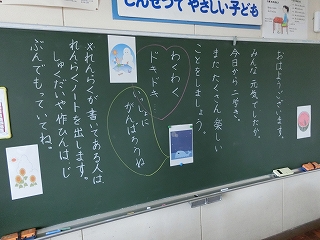 しんせつで やさしい 子ども
おはようございます。
みんな 元気でしたか。
今日から 二学き。
また たくさん 楽しい
ことをしましょう。
わくわく
ドキドキ
いっしょに
がんばろうね
×れんらくが書いてある人は、
れんらくノートを出します。
しゅくだいや作ひんは、じ
ぶんでもっていてね。